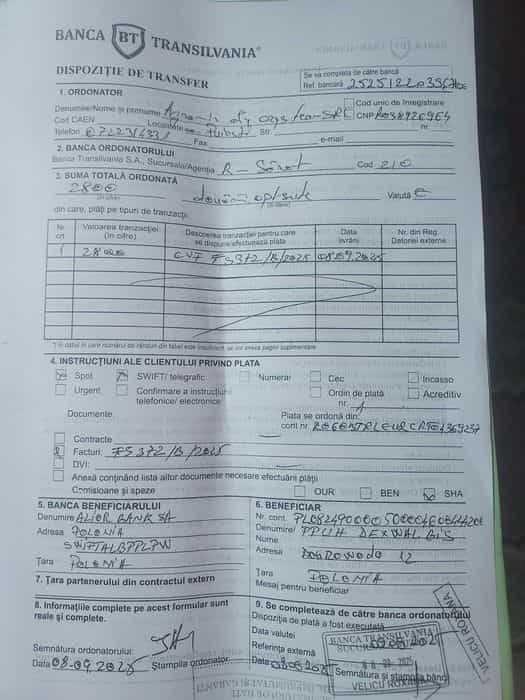 BANCA BT TRANSILVANIA®
DISPOZIŢIE DE TRANSFER
Se va completa de către bancă
Ref. bancară
1. ORDONATOR
Denumire/Nume şi prenume
Cod unic de înregistrare
Cod CAEN Localitatea Str. CNP nr.
Telefon Fax e-mail
2. BANCA ORDONATORULUI
Banca Transilvania S.A., Sucursala/Agenţia Cod 210
3. SUMA TOTALĂ ORDONATĂ
2800 două mii opt sute Valută €
(în cifre) (în litere)
din care, plăţi pe tipuri de tranzacţii:
Nr. crt. Valoarea tranzacţiei (în cifre) Descrierea tranzacţiei pentru care se dispune/efectuează plata Data livrării Nr. din Reg. Datoriei externe
1 2800 CVF FS372/B/2025 08.09.2025
4. INSTRUCŢIUNI ALE CLIENTULUI PRIVIND PLATA
Spot SWIFT/ telegrafic Numerar Cec Incasso
Urgent Confirmare a instrucţiunii telefonice/ electronice Ordin de plată nr. 1 Acreditiv
Documente: Plata se ordonă din:
cont nr.
Contracte
Facturi: FS372/B/2025
DVI:
Anexă conţinând lista altor documente necesare efectuării plăţii
Comisioane şi speze OUR BEN SHA
5. BANCA BENEFICIARULUI
Denumire ALIOR BANK SA
Adresa POLONIA
SWIFT ALBPPLPW
Ţara POLONIA
6. BENEFICIAR
Nr. cont.
Denumire/ Nume PPUH DEXWAL BIS
Adresa DOBROWODA 12
Ţara POLONIA
Mesaj pentru beneficiar
7. Ţara partenerului din contractul extern
8. Informaţiile complete pe acest formular sunt reale şi complete.
Semnătura ordonatorului:
Data 08.09.2025 Ştampila ordonator
9. Se completează de către banca ordonatorului
Dispoziţia de plată a fost executată
Data valutei 09.09.2025
Referinţa externă
Data 08.09.2025
BANCA TRANSILVANIA
Semnătură şi ştampila băncii
VELICU ROXANA